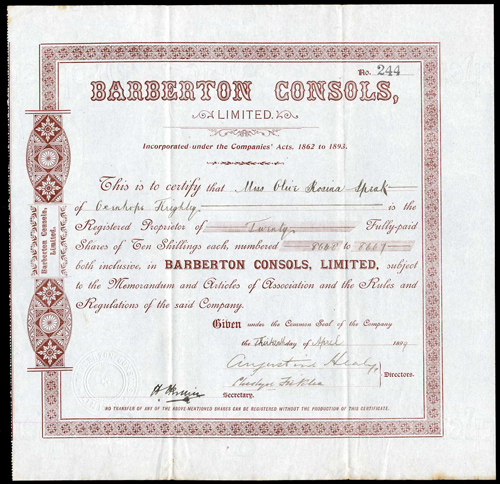 No. 244
BARBERTON CONSOLS,
LIMITED.
Incorporated under the Companies' Acts. 1862 to 1893.
This is to certify that Miss Olive Rosina Speak
of Keighley is the
Registered Proprietor of Twenty Fully-paid
Shares of Ten Shillings each, numbered to
both inclusive, in BARBERTON CONSOLS, LIMITED, subject
to the Memorandum and Articles of Association and the Rules and
Regulations of the said Company.
Given under the Common Seal of the Company
the Thirteenth day of April
Augustine Healy
Directors.
Secretary.
NO TRANSFER OF ANY OF THE ABOVE-MENTIONED SHARES CAN BE REGISTERED WITHOUT THE PRODUCTION OF THIS CERTIFICATE.
Barberton Consols,
Limited.